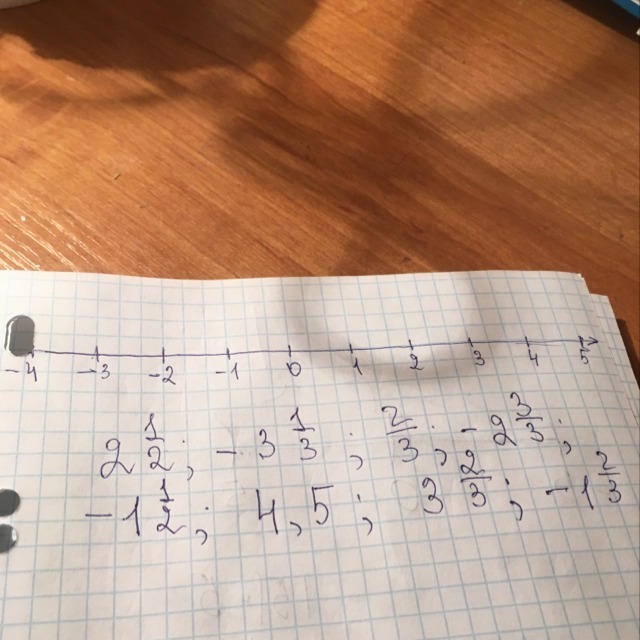 -4 -3 -2 -1 0 1 2 3 4 5
2 1/2; -3 1/3; 2/3; -2 3/3;
-1 1/2; 4,5; 3 2/3; -1 2/3